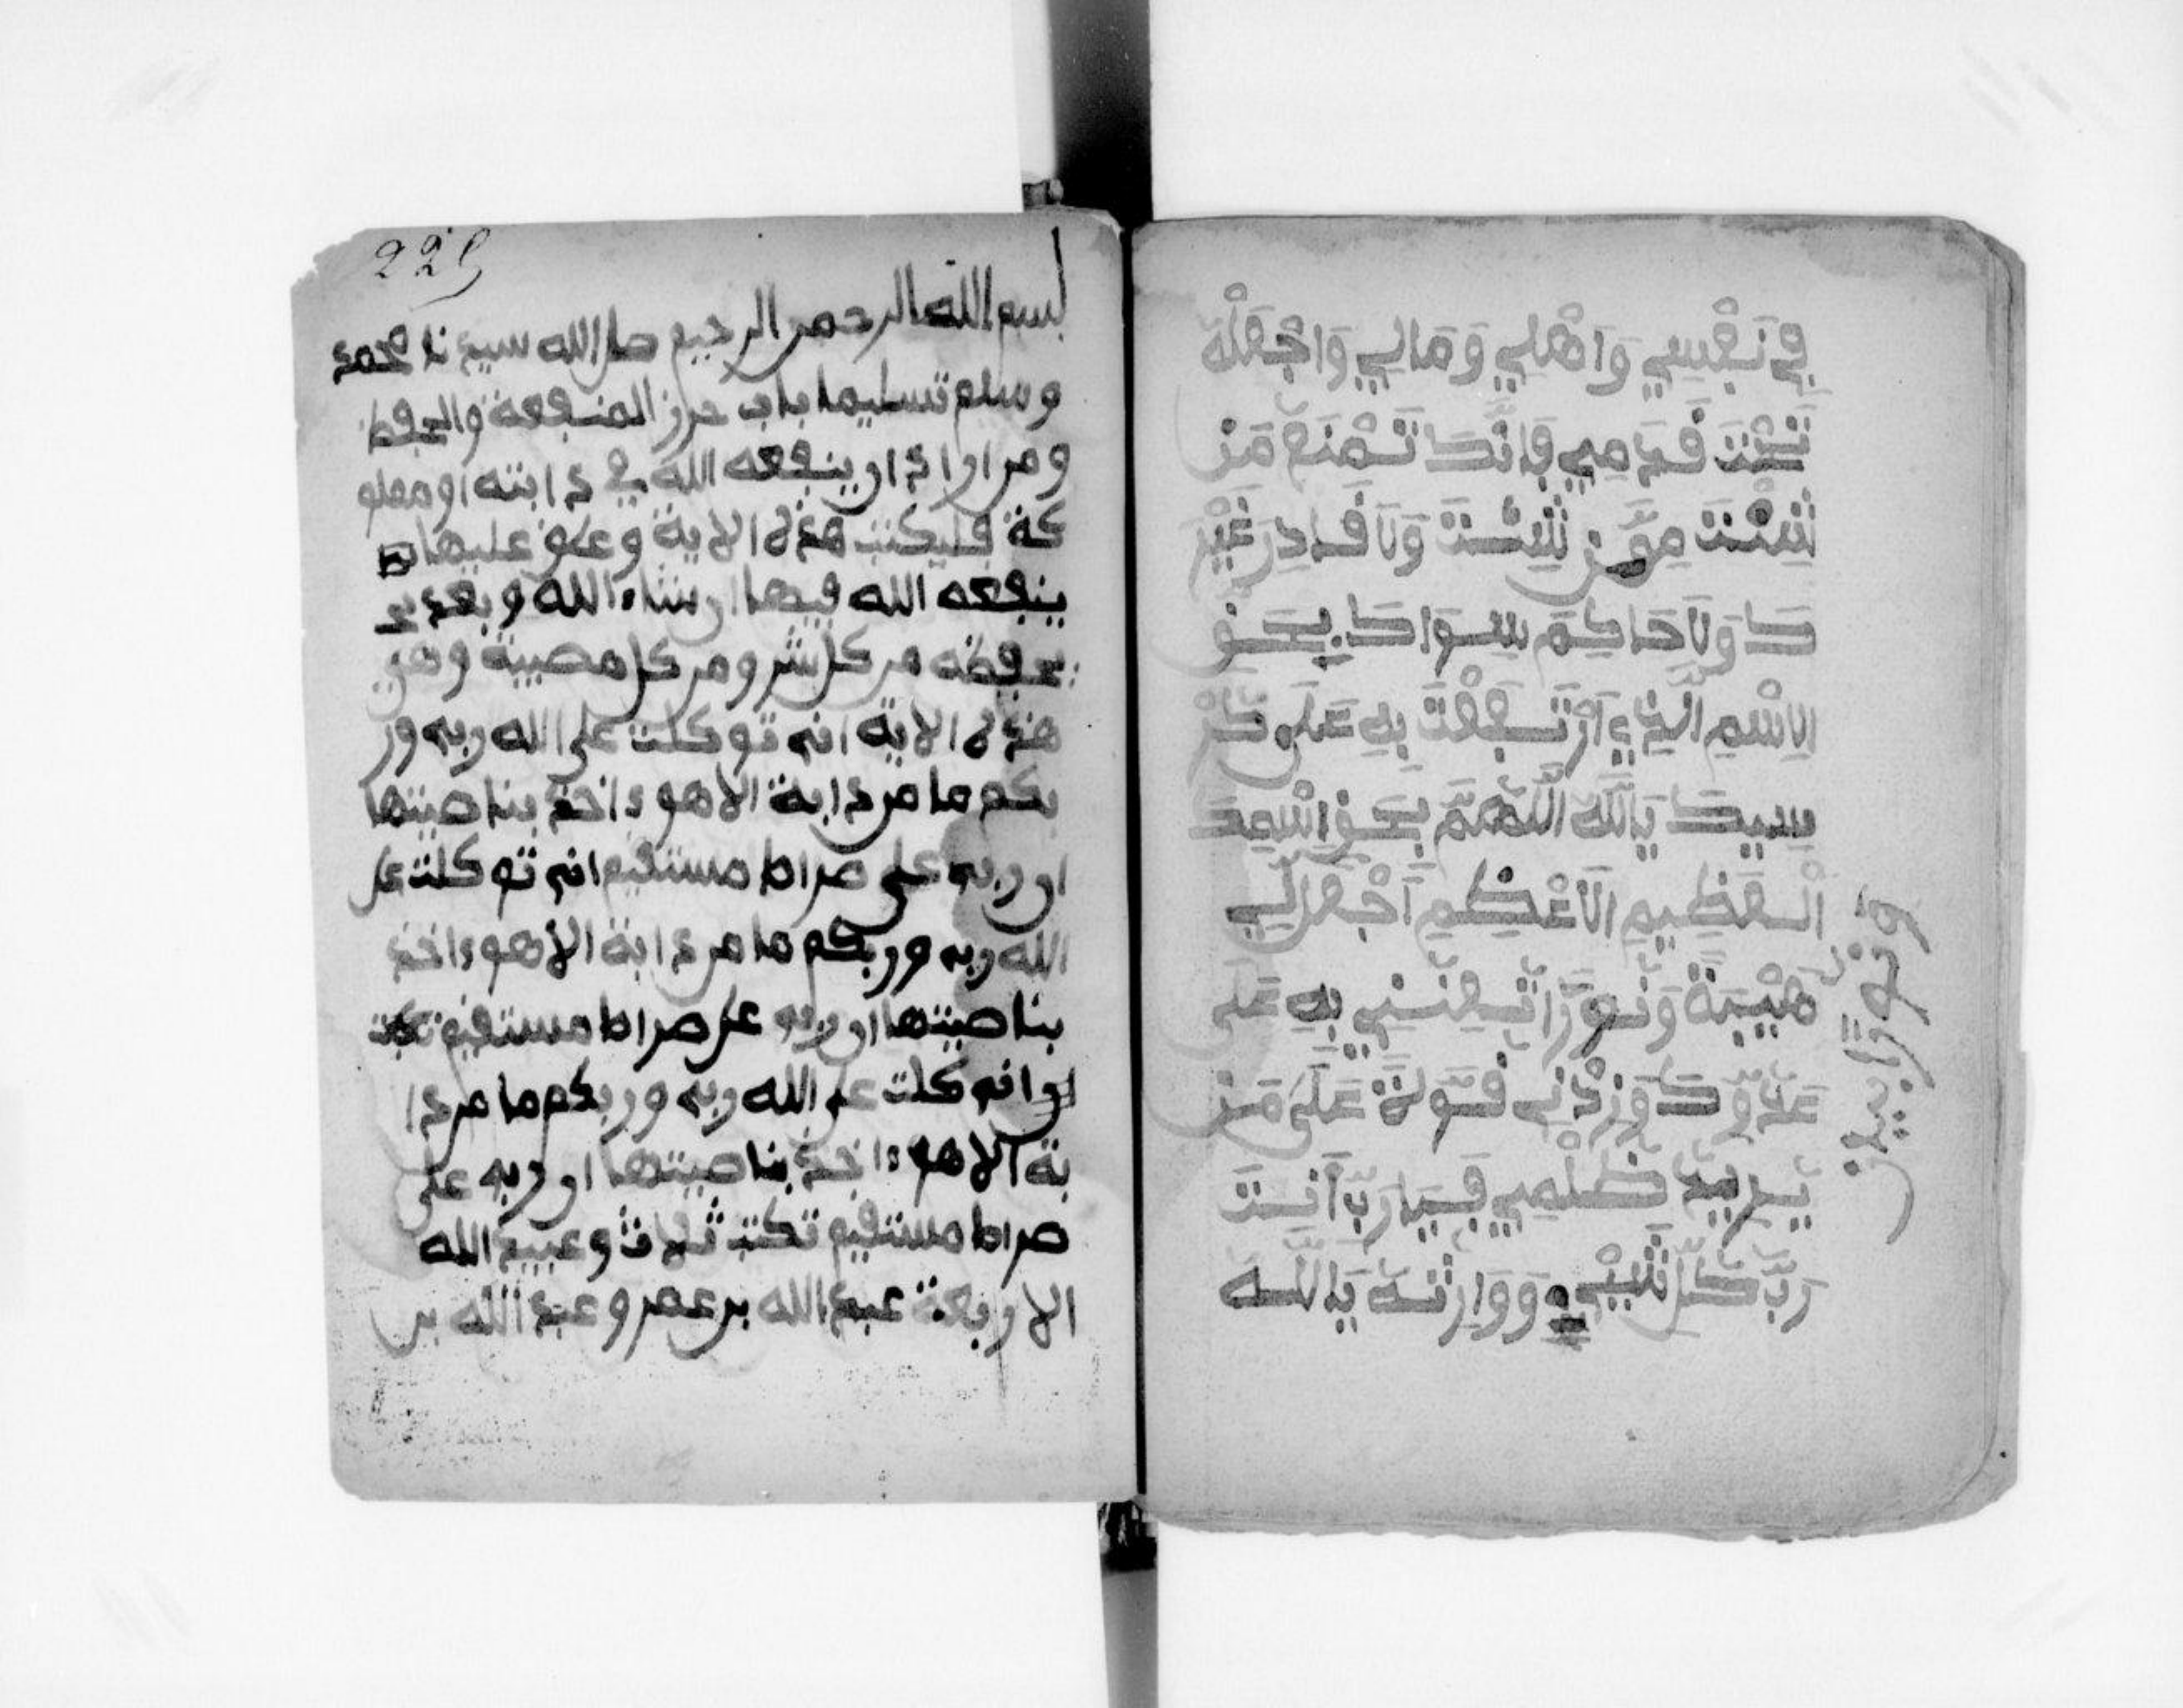 فِي نَفْسِي وَاَهْلِي وَمَالِي وَاجْعَلْهُ
تَحْتَ قَدَمِي فَاِنَّكَ تَمْنَعُ مَن
شِئْتَ مِمَّن شِئْتَ وَلَا قَادِرَ غَيْرَ
كَ وَلَا حَاكِمَ سِوَاكَ بِحَقِّ
الِاسْمِ الَّذِي اَرْتَفَعْتَ بِهِ عَلَى كُرْ
سِيِكَ يَا اللَّهُ اللَّهُمَّ بِحَقِّ اسْمِكَ
الْعَظِيمِ الَاعْظَمِ اَجْعَل لِي
هَيْبَةً وَنُورًا تُعِنِّي بِهِ عَلَى
عَدُوِّكَ وَزِدْنِي قُوَّةً عَلَى مَن
يُرِيدُ ظُلْمِي فَيَا رَبِّ اَنْتَ
رَبُّ كُلِّ شَيْءٍ وَوَارِثُهُ يَا اللَّه
225
بسم الله الرحمن الرحيم صل الله سيدنا محمد
وسلم تسليما باب حرز المنفعة والحفظ
ومن اراد ان ينفعه الله في دابته او مملو
كة فليكتب هذه الاية وعلق عليها
ينفعه الله فيها ان شاء الله وبعد
يحفظه من كل شر ومن كل مصيبة وهي
هذه الاية اني توكلت على الله ربي ور
بكم ما من دابة الا هو ءاخذ بناصيتها
ان ربي على صراط مستقيم اني توكلت على
الله ربي وربكم ما من دابة الا هو ءاخذ
بناصيتها ان ربي على صراط مستقيم
اني كلت على الله ربي وربكم ما من دا
بة الا هو ءاخذ بناصيتها ان ربي على
صراط مستقيم تكتب ثلاث وعبيد الله
الاربعة عبد الله بن عمر وعبد الله بن